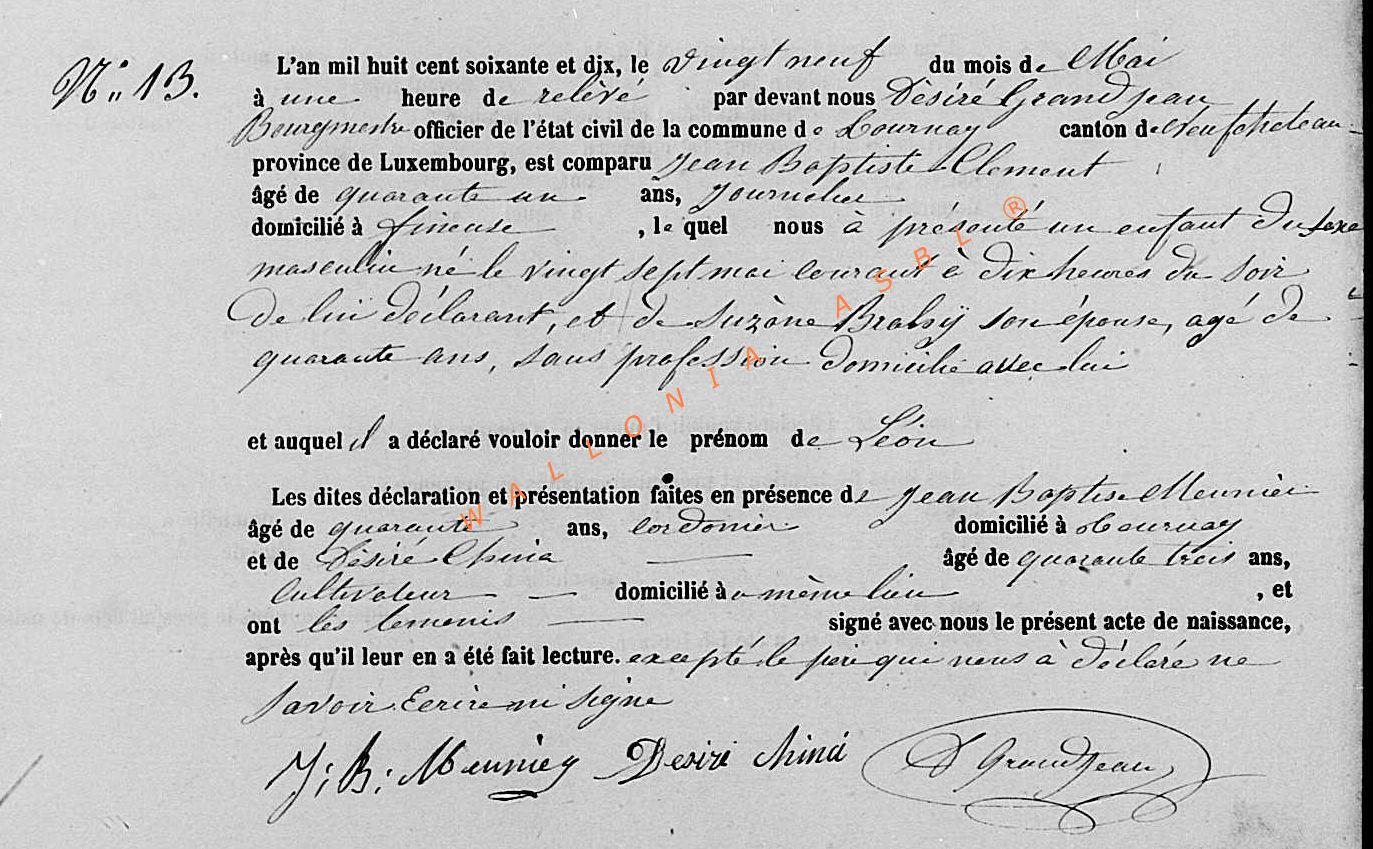 N° 13.
L'an mil huit cent soixante et dix, le vingt neuf du mois de Mai
à une heure de relévé par devant nous Dèsiré Grandjean
Bourgmestre officier de l'état civil de la commune de Tournay canton de Neufchateau
province de Luxembourg, est comparu Jean Baptiste Clement
âgé de quarante un ans, Journelier
domicilié à fineuse , le quel nous à présenté un enfant du sexe
masculin né le vingt sept mai courant à dix heures du soir
de lui déclarant, et de Suzène son épouse, agé de
quarante ans, sans profession domicilié avec lui
et auquel il a déclaré vouloir donner le prénom de Léon
Les dites déclaration et présentation faites en présence de Jean Baptise Meunier
âgé de quarante ans, Cordonier domicilié à Tournay
et de Dèsiré China âgé de quarante trois ans,
Cultivateur domicilié à même lieu , et
ont les temenis signé avec nous le présent acte de naissance,
après qu'il leur en a été fait lecture. excepté le père qui nous à déclaré ne
savoir Ecrire ni signe
J: B: Meunier Desiré Chiná D Grandjean
WALLONIA ASBL ®